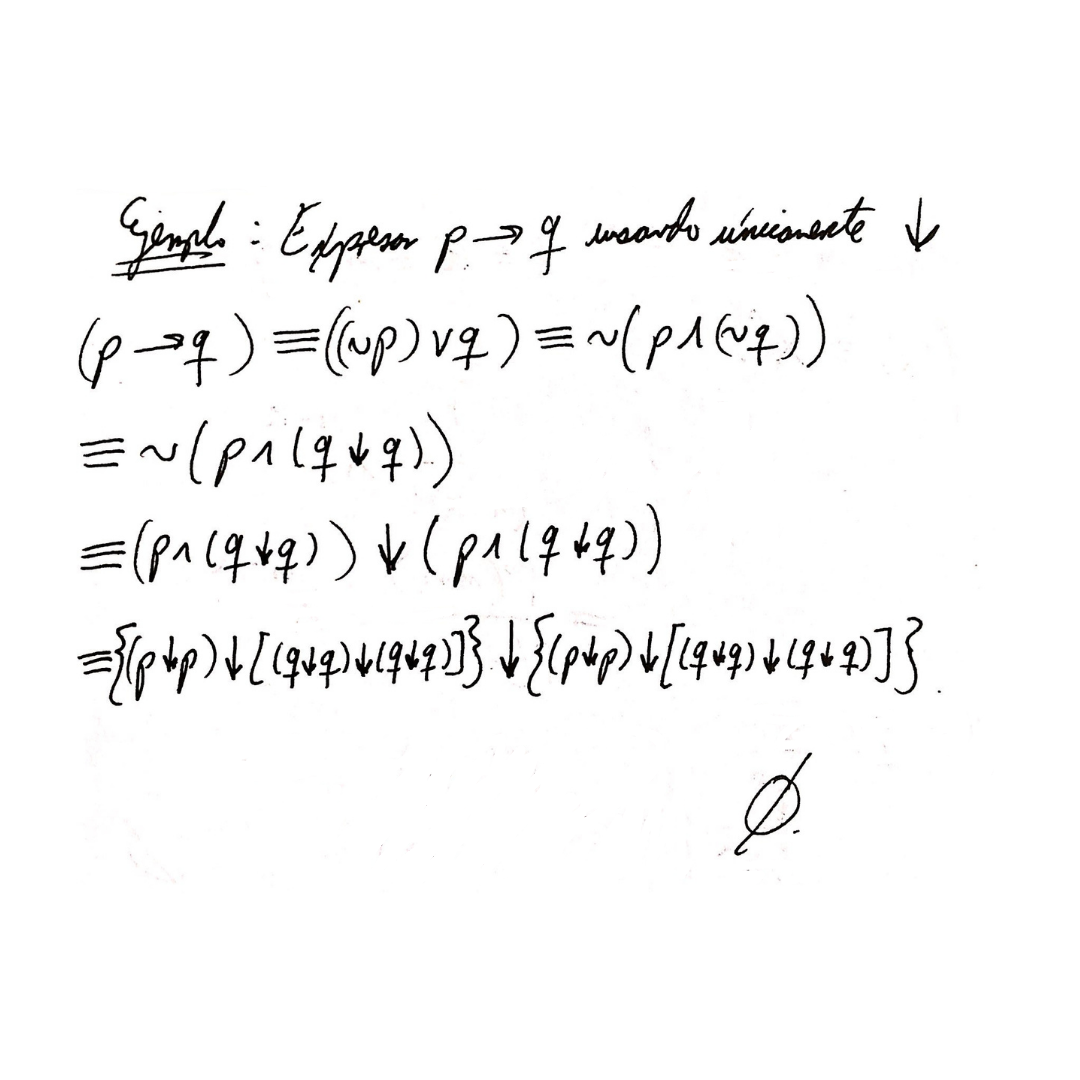 Ejemplo : Expresar p → q usando únicamente ↓
(p → q) ≡ ((~p) ∨ q) ≡ ~(p ∧ (~q))
≡ ~(p ∧ (q ↓ q))
≡ (p ∧ (q ↓ q)) ↓ (p ∧ (q ↓ q))
≡ {(p ↓ p) ↓ [(q ↓ q) ↓ (q ↓ q)]} ↓ {(p ↓ p) ↓ [(q ↓ q) ↓ (q ↓ q)]}.
∅.